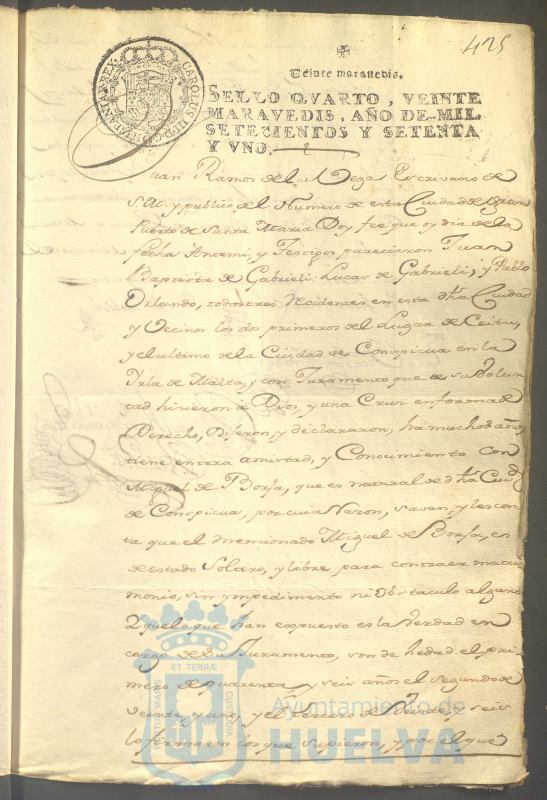 425
Veinte maravedis.
SELLO QVARTO, VEINTE
MARAVEDIS, AÑO DE MIL
SETECIENTOS Y SETENTA
Y VNO.
CAROLUS III D. G. HISPANIAR. REX
Juan Ramon de la Vega Escrivano de
S.M. y publico del Numero de esta Ciudad de Gran
Puerto de Santa Maria Doy fee que oy dia de la
fecha Antemi, y Testigos parecieron Juan
Baptista de Gabrieli: Lucas de Gabrieli; y Pablo
Orlando, todos tres Residentes en esta dha Ciudad
y Vecinos los dos primeros del Lugar de
y el ultimo de la Ciudad de Conspicua en la
Ysla de Malta, y con Juramento que de su Volun
tad hicieron a Dios y una Cruz en forma de
Derecho, Dijeron, y declararon, ha muchos años
tiene entera amistad, y Conocimiento con
Miguel de Borja, que es natural de dha Ciud
de Conspicua, por cuia Razon, saven, y les cons
ta que el mencionado Miguel de Borja, es
de estado Soltero, y libre para contraer matri
monio, sin ympedimento ni Obstaculo alguno
Y que lo que han expuesto es la Verdad en
cargo de su Juramento, son de hedad el pri
mero de quarenta y seis años el segundo de
veinte y uno, y el tercero de Veinte y seis
lo firmaron los que supieron, y por el que
PORTUS MARIS ET TERRÆ CUSTODIA
Ayuntamiento de
HUELVA